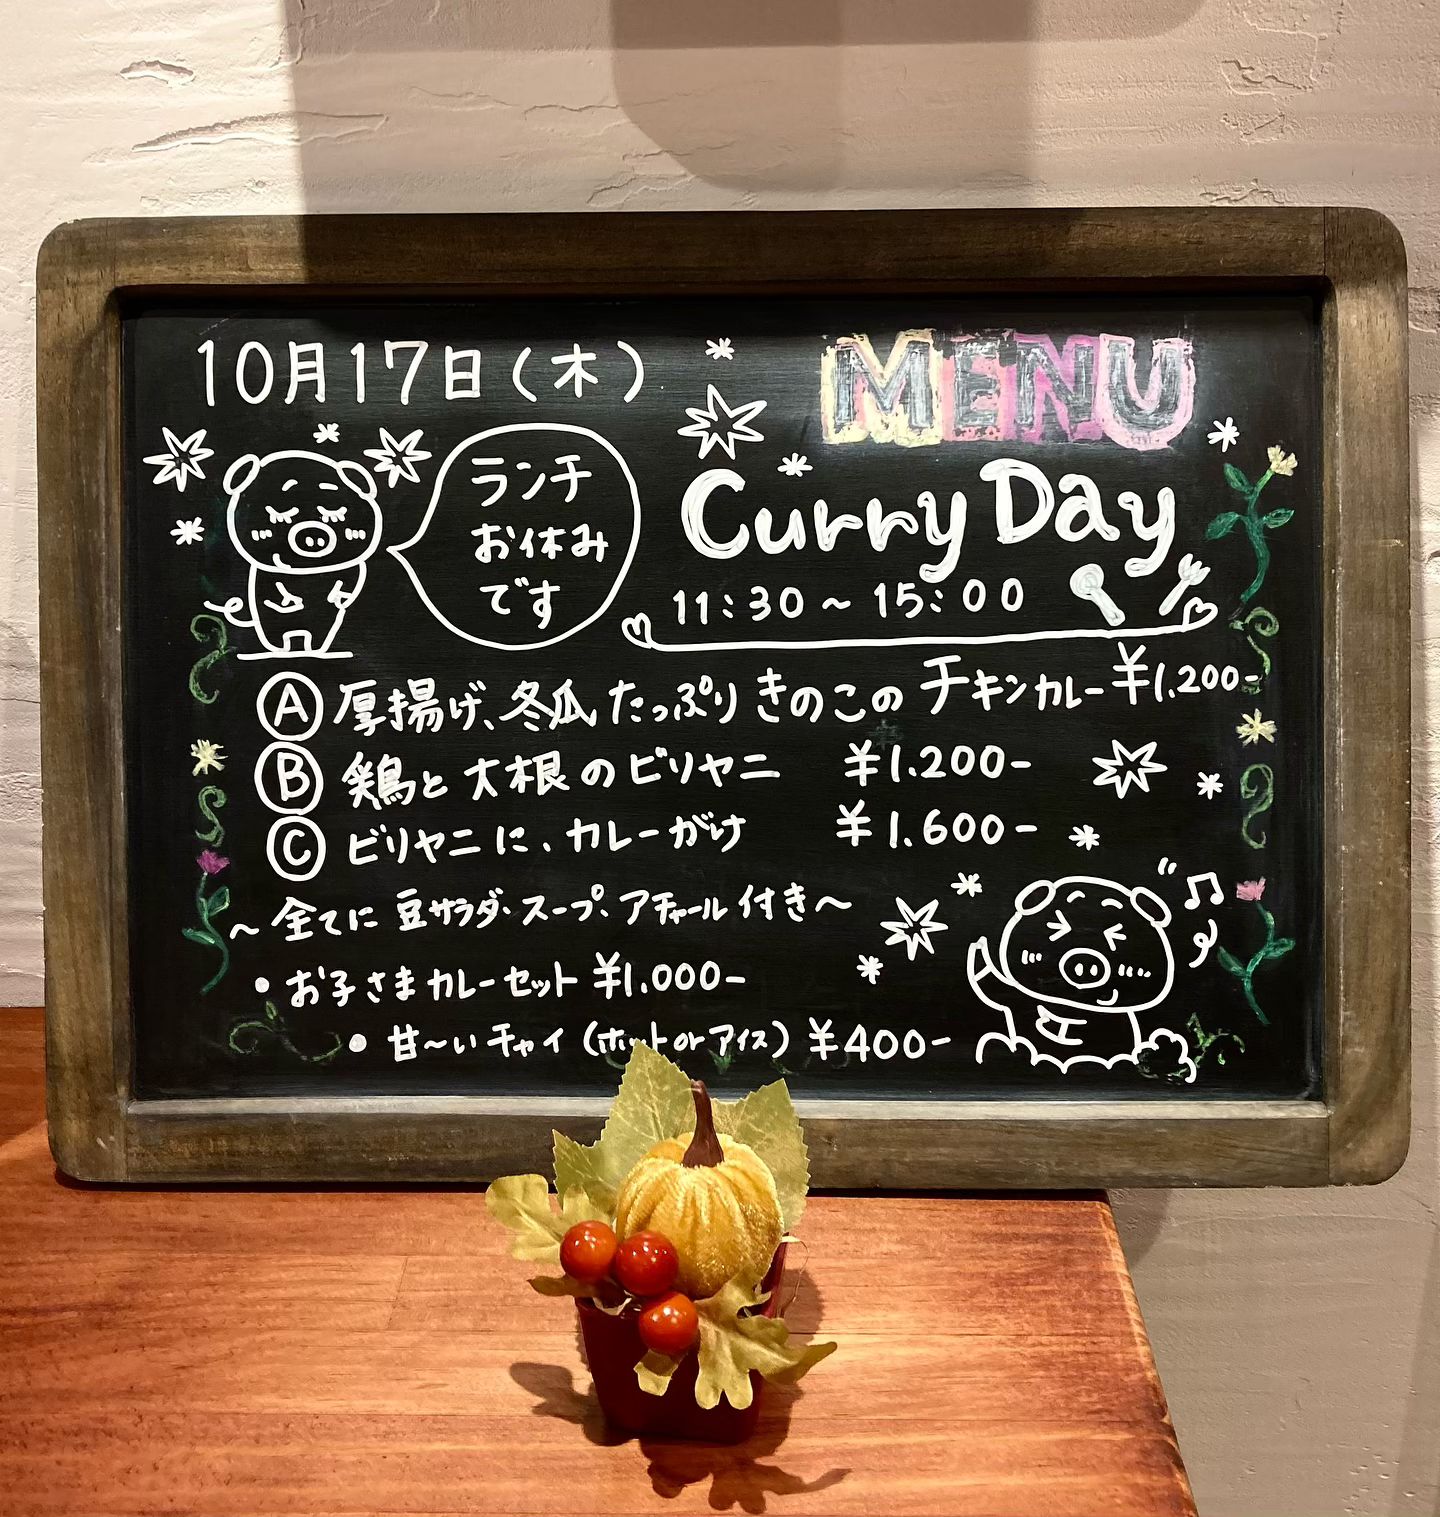 10月17日(木)
MENU
ランチ
お休み
です
Curry Day
11:30~15:00
Ⓐ厚揚げ、冬瓜たっぷりきのこのチキンカレー¥1.200-
Ⓑ鶏と大根のビリヤニ ¥1.200-
Ⓒビリヤニに、カレーがけ ¥1.600-
~全てに豆サラダ・スープ・アチャール付き~
・お子さまカレーセット¥1.000-
・甘~いチャイ(ホットorアイス)¥400-